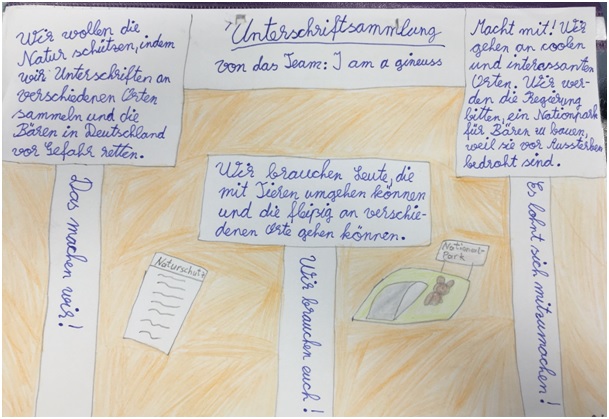 Unterschriftsammlung
von das Team: I am a gineuss
Wir wollen die
Natur schützen, indem
wir Unterschriften an
verschiedenen Orten
sammeln und die
Bären in Deutschland
vor Gefahr retten.
Das machen wir!
Wir brauchen Leute, die
mit Tieren umgehen können
und die fleißig an verschie-
denen Orte gehen können.
Wir brauchen euch!
Macht mit! Wir
gehen an coolen
und interassanten
Orten. Wir wer-
den die Regierung
bitten, ein Nationpark
für Bären zu bauen,
weil sie vor Aussterben
bedroht sind.
Es lohnt sich mitzumachen!
Naturschutz
National-
Park